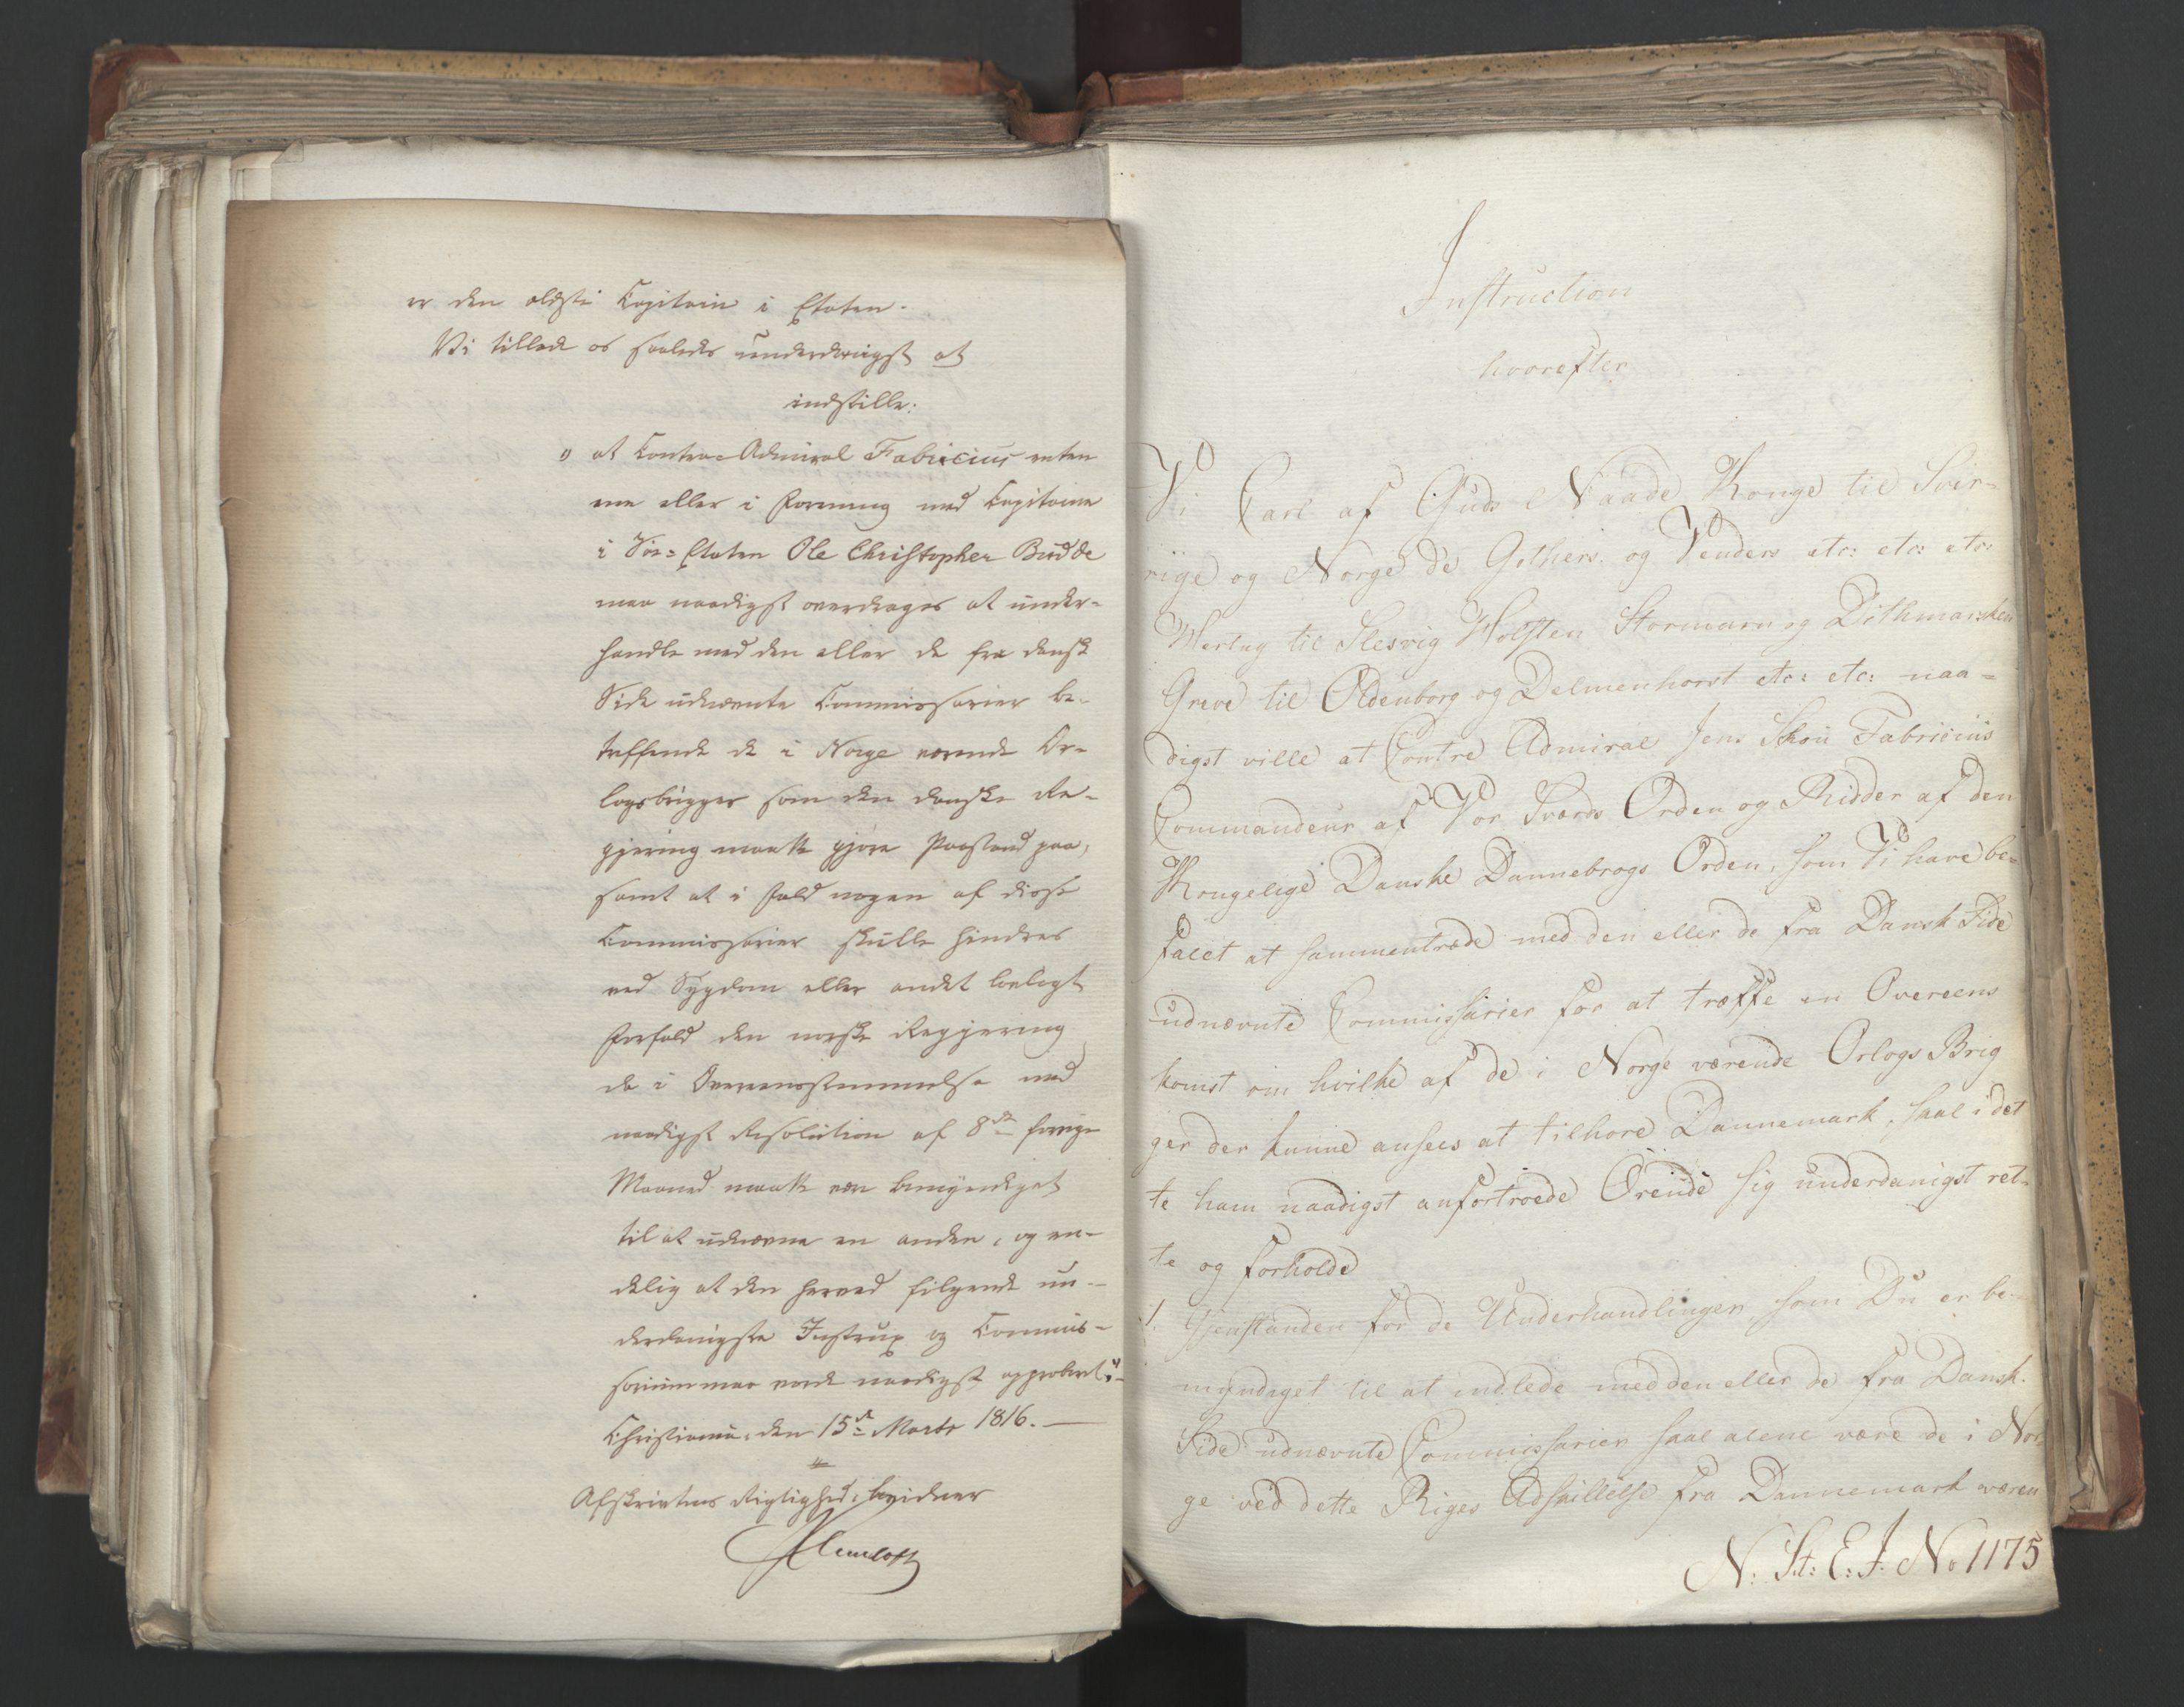 er den eldste Capitain i Etaten.
Vi tillade os saaledes underdanigst at
indstille:
"at Contra-Admiral Fabricius enten
ene eller i Forening med Capitaine
i Söe-Etaten Ole Christopher Budde
maa naadigst overdrages at under-
handle med den eller de fra dansk
Side udnævnte Commissarier be-
træffende de i Norge værende Or-
logsbrigger som den danske Re-
gjering maatte gjøre Paastand paa,
samt at i Fald nogen af disse
Commissarier skulle hindres
ved Sygdom eller andet lovligt
Forfald den norske Regjering
da i Overeensstemmelse med
naadigst Resolution af 8de forrige
Maaned maatte være bemyndiget
til at udnævne en anden, og en-
delig at den herved følgende un-
derdanigste Instrux og Commis-
sorium maa vorde naadigst approberet."
Christiania, den 15de Marts 1816.
Afskrivtens Rigtighed, bevidner
Instruction
hvorefter
Vi Carl af Guds Naade Konge til Sver-
rige og Norge de Gothers og Venders etc: etc: etc:
Hertug til Slesvig Holsten Stormarn og Dithmarsken
Greve til Oldenborg og Delmenhorst etc: etc: naa-
digst ville at Contre Admiral Jens Skou Fabricius
Commandeur af Vor Sværds Orden og Ridder af den
Kongelige Danske Dannebrogs Orden, som Vi have be-
falet at sammentræde med den eller de fra Dansk Side
udnævnte Commissarier for at træffe en Overeens
komst om hvilke af de i Norge værende Orlogs Brig
ger der kunne ansees at tilhøre Dannemark, skal i det
te ham naadigst anfortroede Ørende sig underdanigst ret-
te og forholde
1. Gjenstanden for de Underhandlinger som Du er be-
myndiget til at indlede med den eller de fra Dansk
Side udnævnte Commissarier skal alene være de i Nor
ge ved dette Riges Adskillelse fra Dannemark væren
N: St: E: J. No 1175